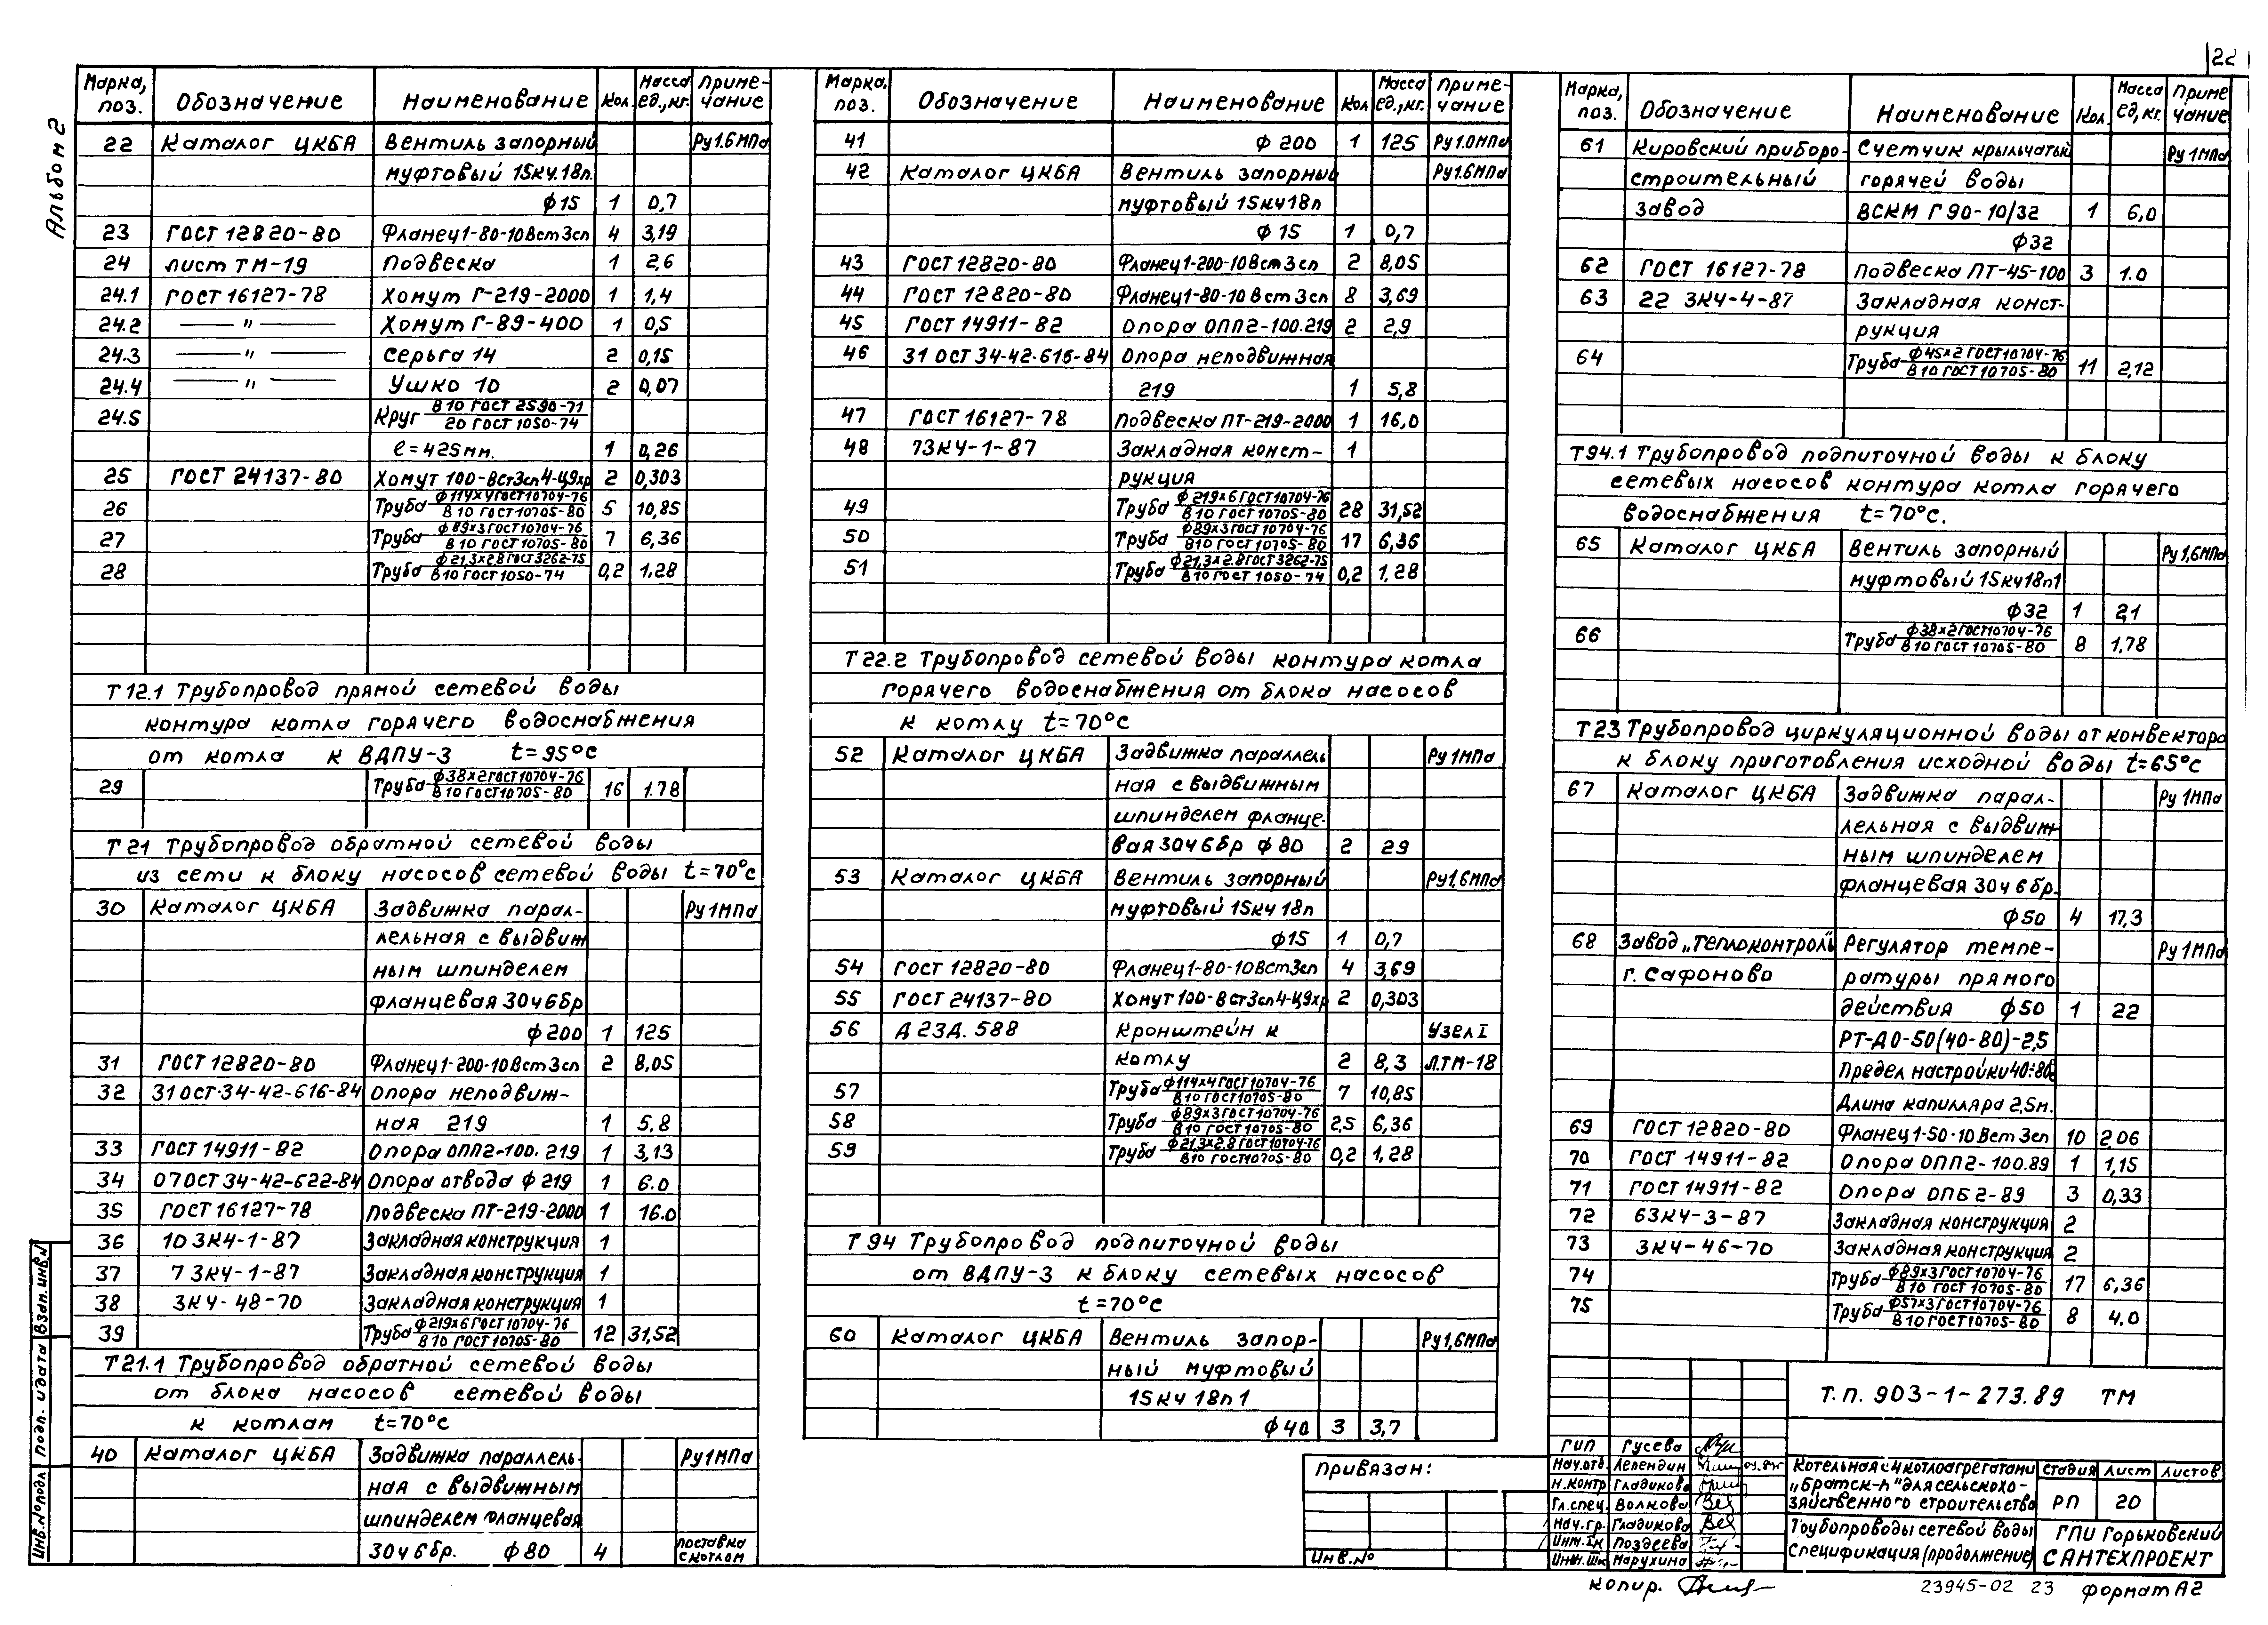 22
Альбом 2
Марка, поз. Обозначение Наименование Кол. Масса ед., кг. Приме-чание
22 Каталог ЦКБА Вентиль запорный Ру1.6МПа
муфтовый 15кч.18п.
ф15 1 0,7
23 ГОСТ 12820-80 Фланец1-80-10Вст3сп 4 3,19
24 лист ТМ-19 Подвеска 1 2,6
24.1 ГОСТ 16127-78 Хомут Г-219-2000 1 1,4
24.2 —— " —— Хомут Г-89-400 1 0,5
24.3 —— " —— Серьга 14 2 0,15
24.4 —— " —— Ушко 10 2 0,07
24.5 Круг В10 ГОСТ 2590-71 / 20 ГОСТ 1050-74
ℓ=425мм. 1 0,26
25 ГОСТ 24137-80 Хомут 100-Вст3сп4-Ц9хр 2 0,303
26 Труба ф114х4ГОСТ10704-76 / В10 ГОСТ10705-80 5 10,85
27 Труба ф89х3ГОСТ10704-76 / В10 ГОСТ10705-80 7 6,36
28 Труба ф21,3х2,8ГОСТ3262-75 / В10 ГОСТ1050-74 0,2 1.28
Т12.1 Трубопровод прямой сетевой воды
контура котла горячего водоснабжения
от котла к ВДПУ-3 t=95°С
29 Труба ф38х2ГОСТ10704-76 / В10 ГОСТ10705-80 16 1.78
Т21 Трубопровод обратной сетевой воды
из сети к блоку насосов сетевой воды t=70°с
30 Каталог ЦКБА Задвижка парал- Ру1МПа
лельная с выдвиж
ным шпинделем
фланцевая 30ч6бр
ф200 1 125
31 ГОСТ 12820-80 Фланец1-200-10Вст3сп 2 8,05
32 31ОСТ-34-42-616-84 Опора неподвиж-
ная 219 1 5,8
33 ГОСТ 14911-82 Опора ОПП2-100.219 1 3,13
34 07ОСТ 34-42-622-84 Опора отвода ф219 1 6.0
35 ГОСТ 16127-78 Подвеска ПТ-219-2000 1 16.0
36 10 ЗК4-1-87 Закладная конструкция 1
37 7 ЗК4-1-87 Закладная конструкция 1
38 ЗК4-48-70 Закладная конструкция 1
39 Труба ф219х6ГОСТ10704-76 / В10 ГОСТ 10705-80 12 31,52
Т21.1 Трубопровод обратной сетевой воды
от блока насосов сетевой воды
к котлам t=70°с
40 Каталог ЦКБА Задвижка параллель- Ру1МПа
ная с выдвижным
шпинделем фланцевая
30ч6бр. ф80 4 поставка с котлом
Марка, поз. Обозначение Наименование Кол Масса ед., кг. Приме-чание
41 ф200 1 125 Ру1.0МПа
42 Каталог ЦКБА Вентиль запорный Ру1.6МПа
муфтовый 15кч18п
ф15 1 0,7
43 ГОСТ 12820-80 Фланец1-200-10Вст3сп 2 8,05
44 ГОСТ 12820-80 Фланец1-80-10Вст3сп 8 3,69
45 ГОСТ 14911-82 Опора ОПП2-100.219 2 2,9
46 31 ОСТ 34-42-616-84 Опора неподвижная
219 1 5,8
47 ГОСТ 16127-78 Подвеска ПТ-219-2000 1 16,0
48 7ЗК4-1-87 Закладная конст- 1
рукция
49 Труба ф219х6ГОСТ10704-76 / В10 ГОСТ10705-80 28 31,52
50 Труба ф89х3ГОСТ10704-76 / В10 ГОСТ10705-80 17 6,36
51 Труба ф21,3х2.8ГОСТ3262-75 / В10 ГОСТ 1050-74 0,2 1,28
Т22.2 Трубопровод сетевой воды контура котла
горячего водоснабжения от блока насосов
к котлу t=70°с
52 Каталог ЦКБА Задвижка параллель Ру1МПа
ная с выдвижным
шпинделем фланце-
вая 30ч6бр ф80 2 29
53 Каталог ЦКБА Вентиль запорный Ру1,6МПа
муфтовый 15кч18п
ф15 1 0,7
54 ГОСТ 12820-80 Фланец1-80-10Вст3сп 4 3,69
55 ГОСТ 24137-80 Хомут 100-Вст3сп4-Ц9хр 2 0,303
56 А23Д.588 Кронштейн к Узел I
котлу 2 8,3 Л.ТМ-18
57 Труба ф114х4ГОСТ10704-76 / В10 ГОСТ10705-80 7 10,85
58 Труба ф89х3ГОСТ10704-76 / В10 ГОСТ10705-80 2,5 6,36
59 Труба ф21,3х2,8ГОСТ10704-76 / В10 ГОСТ10705-80 0,2 1,28
Т94 Трубопровод подпиточной воды
от ВДПУ-3 к блоку сетевых насосов
t=70°С
60 Каталог ЦКБА Вентиль запор- Ру1,6МПа
ный муфтовый
15кч18п1
ф40 3 3,7
Марка, поз. Обозначение Наименование Кол. Масса ед, кг. Приме чание
61 Кировский приборо- Счетчик крыльчатый Ру1МПа
строительный горячей воды
завод ВСКМ Г 90-10/32 1 6,0
ф32
62 ГОСТ 16127-78 Подвеска ПТ-45-100 3 1.0
63 22 ЗК4-4-87 Закладная конст-
рукция
64 Труба ф45х2ГОСТ10704-76 / В10 ГОСТ10705-80 11 2,12
Т94.1 Трубопровод подпиточной воды к блоку
сетевых насосов контура котла горячего
водоснабжения t=70°с.
65 Каталог ЦКБА Вентиль запорный Ру1,6МПа
муфтовый 15кч18п1
ф32 1 2,1
66 Труба ф38х2ГОСТ10704-76 / В10 ГОСТ10705-80 8 1.78
Т23 Трубопровод циркуляционной воды от конвектора
к блоку приготовления исходной воды t=65°с
67 Каталог ЦКБА Задвижка парал- Ру1МПа
лельная с выдвиж
ным шпинделем
фланцевая 30ч6бр.
ф50 4 17,3
68 Завод „Теплоконтроль" Регулятор темпе- Ру1МПа
г. Сафоново ратуры прямого
действия ф50 1 22
РТ-ДО-50(40-80)-2,5
Предел настройки40÷80с
Длина капилляра 2,5м.
69 ГОСТ 12820-80 Фланец1-50-10Вст3сп 10 2,06
70 ГОСТ 14911-82 Опора ОПП2-100.89 1 1,15
71 ГОСТ 14911-82 Опора ОПБ2-89 3 0,33
72 63К4-3-87 Закладная конструкция 2
73 ЗК4-46-70 Закладная конструкция 2
74 Труба ф89х3ГОСТ10704-76 / В10 ГОСТ10705-80 17 6,36
75 Труба ф57х3ГОСТ10704-76 / В10 ГОСТ10705-80 8 4.0
Т.П. 903-1-273.89 ТМ
Привязан:
Инв.№
ГИП Гусева
Нач.отд. Лепендин
Н.контр Гладикова
Гл.спец. Волкова
Нач.гр. Гладикова
Инж.Iк Поздеева
Инж.IIк Марухина
Котельная с 4 котлоагрегатами
„Братск-М" для сельскохо-
зяйственного строительства
Стадия Лист Листов
РП 20
Трубопроводы сетевой воды
Спецификация (продолжение)
ГПИ Горьковский
САНТЕХПРОЕКТ
Копир.
23945-02 23 формат А2
Взам.инв.№
Подп. и дата
Инв.№подл